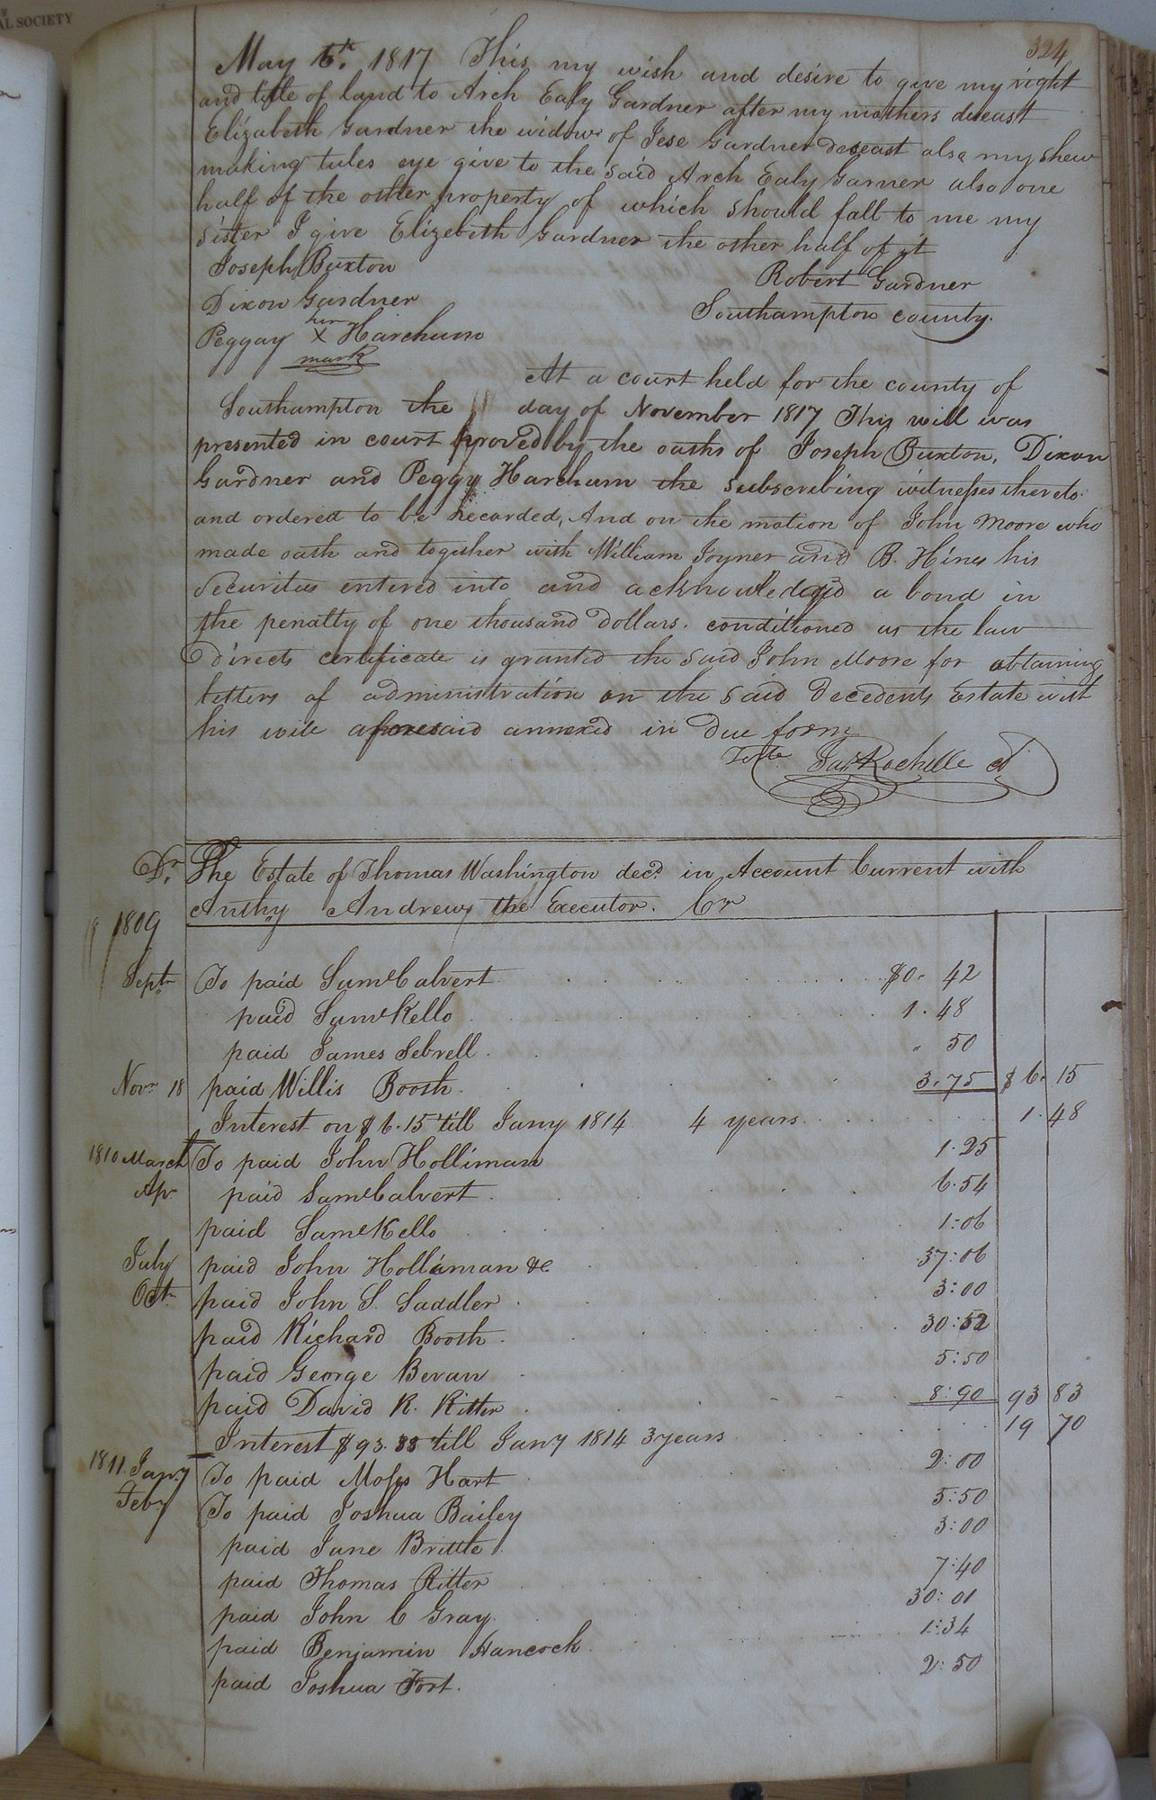 AL SOCIETY
324
May 6th. 1817 This my wish and desire to give my right
and title of land to Arch Ealy Gardner after my mothers deceast
Elizabeth Gardner the widow of Jese Gardner deceast also my shew
making tules eye give to the said Arch Ealy Garner also one
half of the other property of which should fall to me my
sister I give Elizebeth Gardner the other half of it
Joseph Buxton
Robert Gardner
Dixon Gardner
Southampton county.
her
Peggay X Harchum
mark
At a court held for the county of
Southampton the day of November 1817 This will was
presented in court proved by the oaths of Joseph Buxton, Dixon
Gardner and Peggy Harchum the subscribing witnesses thereto
and ordered to be recorded, And on the motion of John Moore who
made oath and together with William Joyner and B. Hines his
securities entered into and acknowledged a bond in
the penalty of one thousand Dollars. conditioned as the law
directs certificate is granted the said John Moore for obtaining
letters of administration on the said decedents Estate with
his will aforesaid annexed in due form
Teste Jas Rochelle Cl
Dr. The Estate of Thomas Washington decd. in Account Current with
Anthy Andrews the Executor. Cr
1809
Sept To paid Saml Calvert $0. 42
paid Saml Kello 1. 48
paid James Sebrell . 50
Novr 18 paid Willis Booth 3.75 $ 6. 15
Interest on $ 6.15 till Jany 1814 4 years 1. 48
1810 March To paid John Holliman 1.25
Apr paid Saml Calvert 6.54
paid Saml Kello 1:06
July paid John Holliman &c 37:06
Oct paid John S. Saddler 3:00
paid Richard Booth 30:52
paid George Bevan 5:50
paid David R. Ritter 8:90 93 83
Interest $ 93.83 till Jany 1814 3 years 19 70
1811 Jany To paid Moses Hart 2:00
Feby To paid Joshua Bailey 5:50
paid Jane Brittle 3:00
paid Thomas Ritter 7:40
paid John C Gray 30:01
paid Benjamin Hancock 1:34
paid Joshua Fort. 2:50